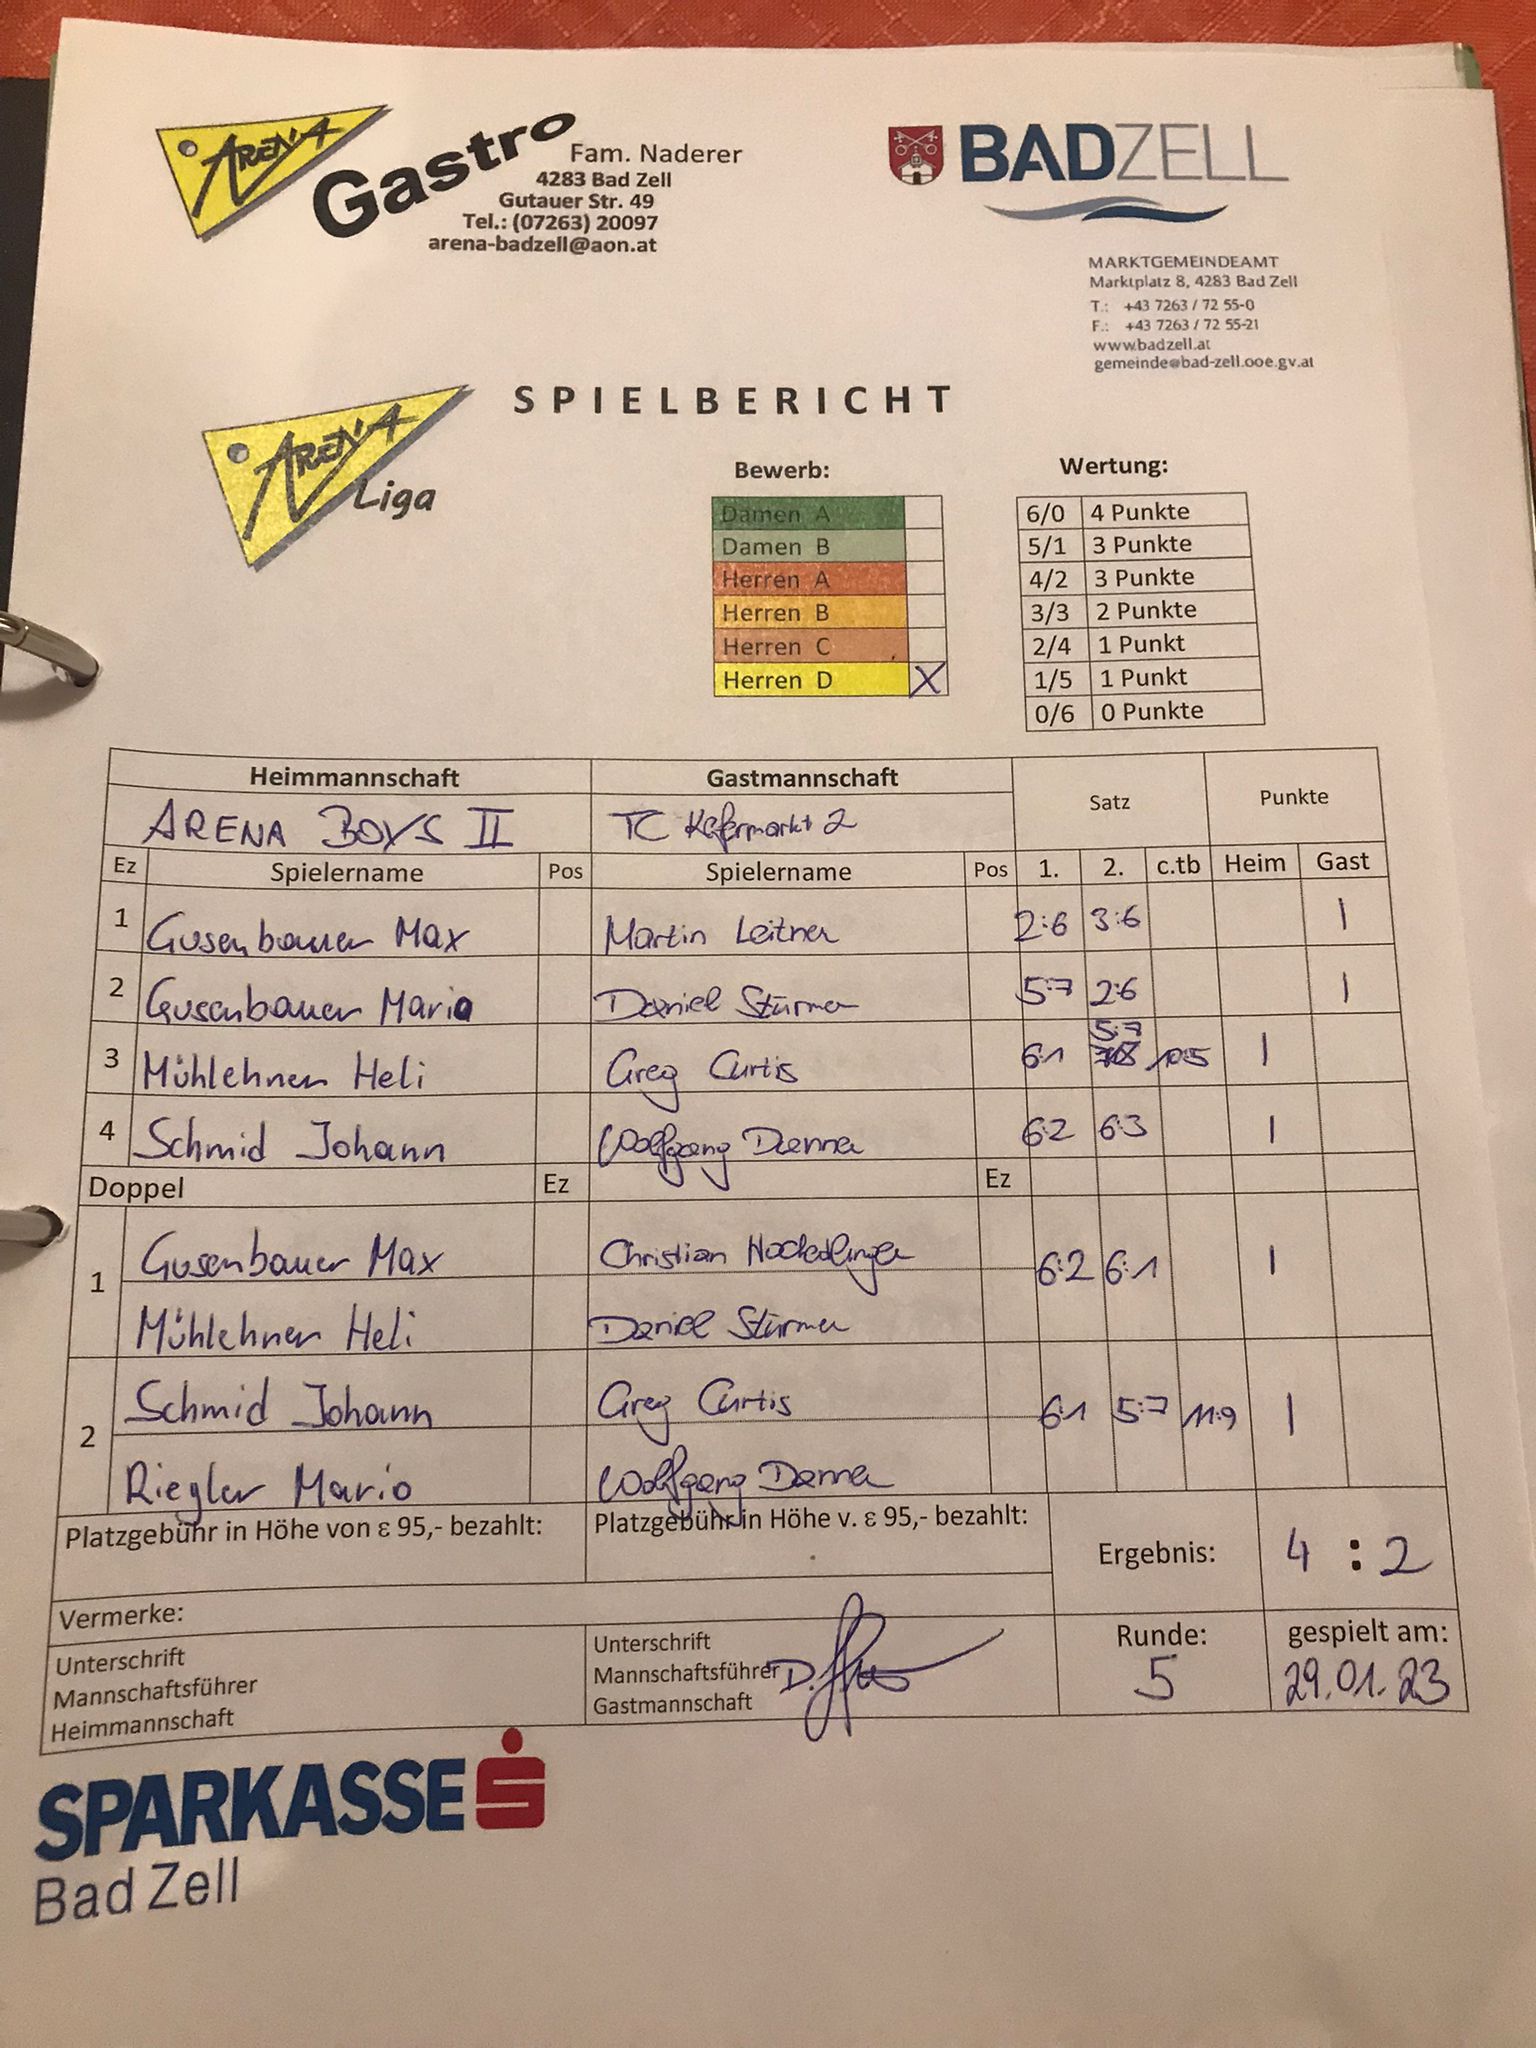 ARENA Gastro
Fam. Naderer
4283 Bad Zell
Gutauer Str. 49
Tel.: (07263) 20097
arena-badzell@aon.at
BADZELL
MARKTGEMEINDEAMT
Marktplatz 8, 4283 Bad Zell
T.: +43 7263 / 72 55-0
F.: +43 7263 / 72 55-21
www.badzell.at
gemeinde@bad-zell.ooe.gv.at
SPIELBERICHT
ARENA Liga
Bewerb:
Damen A
Damen B
Herren A
Herren B
Herren C
Herren D X
Wertung:
6/0 4 Punkte
5/1 3 Punkte
4/2 3 Punkte
3/3 2 Punkte
2/4 1 Punkt
1/5 1 Punkt
0/6 0 Punkte
Heimmannschaft Gastmannschaft Satz Punkte
ARENA BOYS II TC Kefermarkt 2
Ez Spielername Pos Spielername Pos 1. 2. c.tb Heim Gast
1 Gusenbauer Max Martin Leitner 2:6 3:6 1
2 Gusenbauer Mario Daniel Stürmer 5:7 2:6 1
3 Mühlehner Heli Greg Curtis 6:1 5:7 10:5 1
4 Schmid Johann Wolfgang Danner 6:2 6:3 1
Doppel Ez Ez
1 Gusenbauer Max Christian Hockedlinger 6:2 6:1 1
Mühlehner Heli Daniel Stürmer
2 Schmid Johann Greg Curtis 6:1 5:7 11:9 1
Riegler Mario Wolfgang Danner
Platzgebühr in Höhe von ε 95,- bezahlt: Platzgebühr in Höhe v. ε 95,- bezahlt:
Ergebnis: 4 : 2
Vermerke:
Unterschrift
Mannschaftsführer
Heimmannschaft
Unterschrift
Mannschaftsführer
Gastmannschaft
Runde:
5
gespielt am:
29.01.23
SPARKASSE
Bad Zell